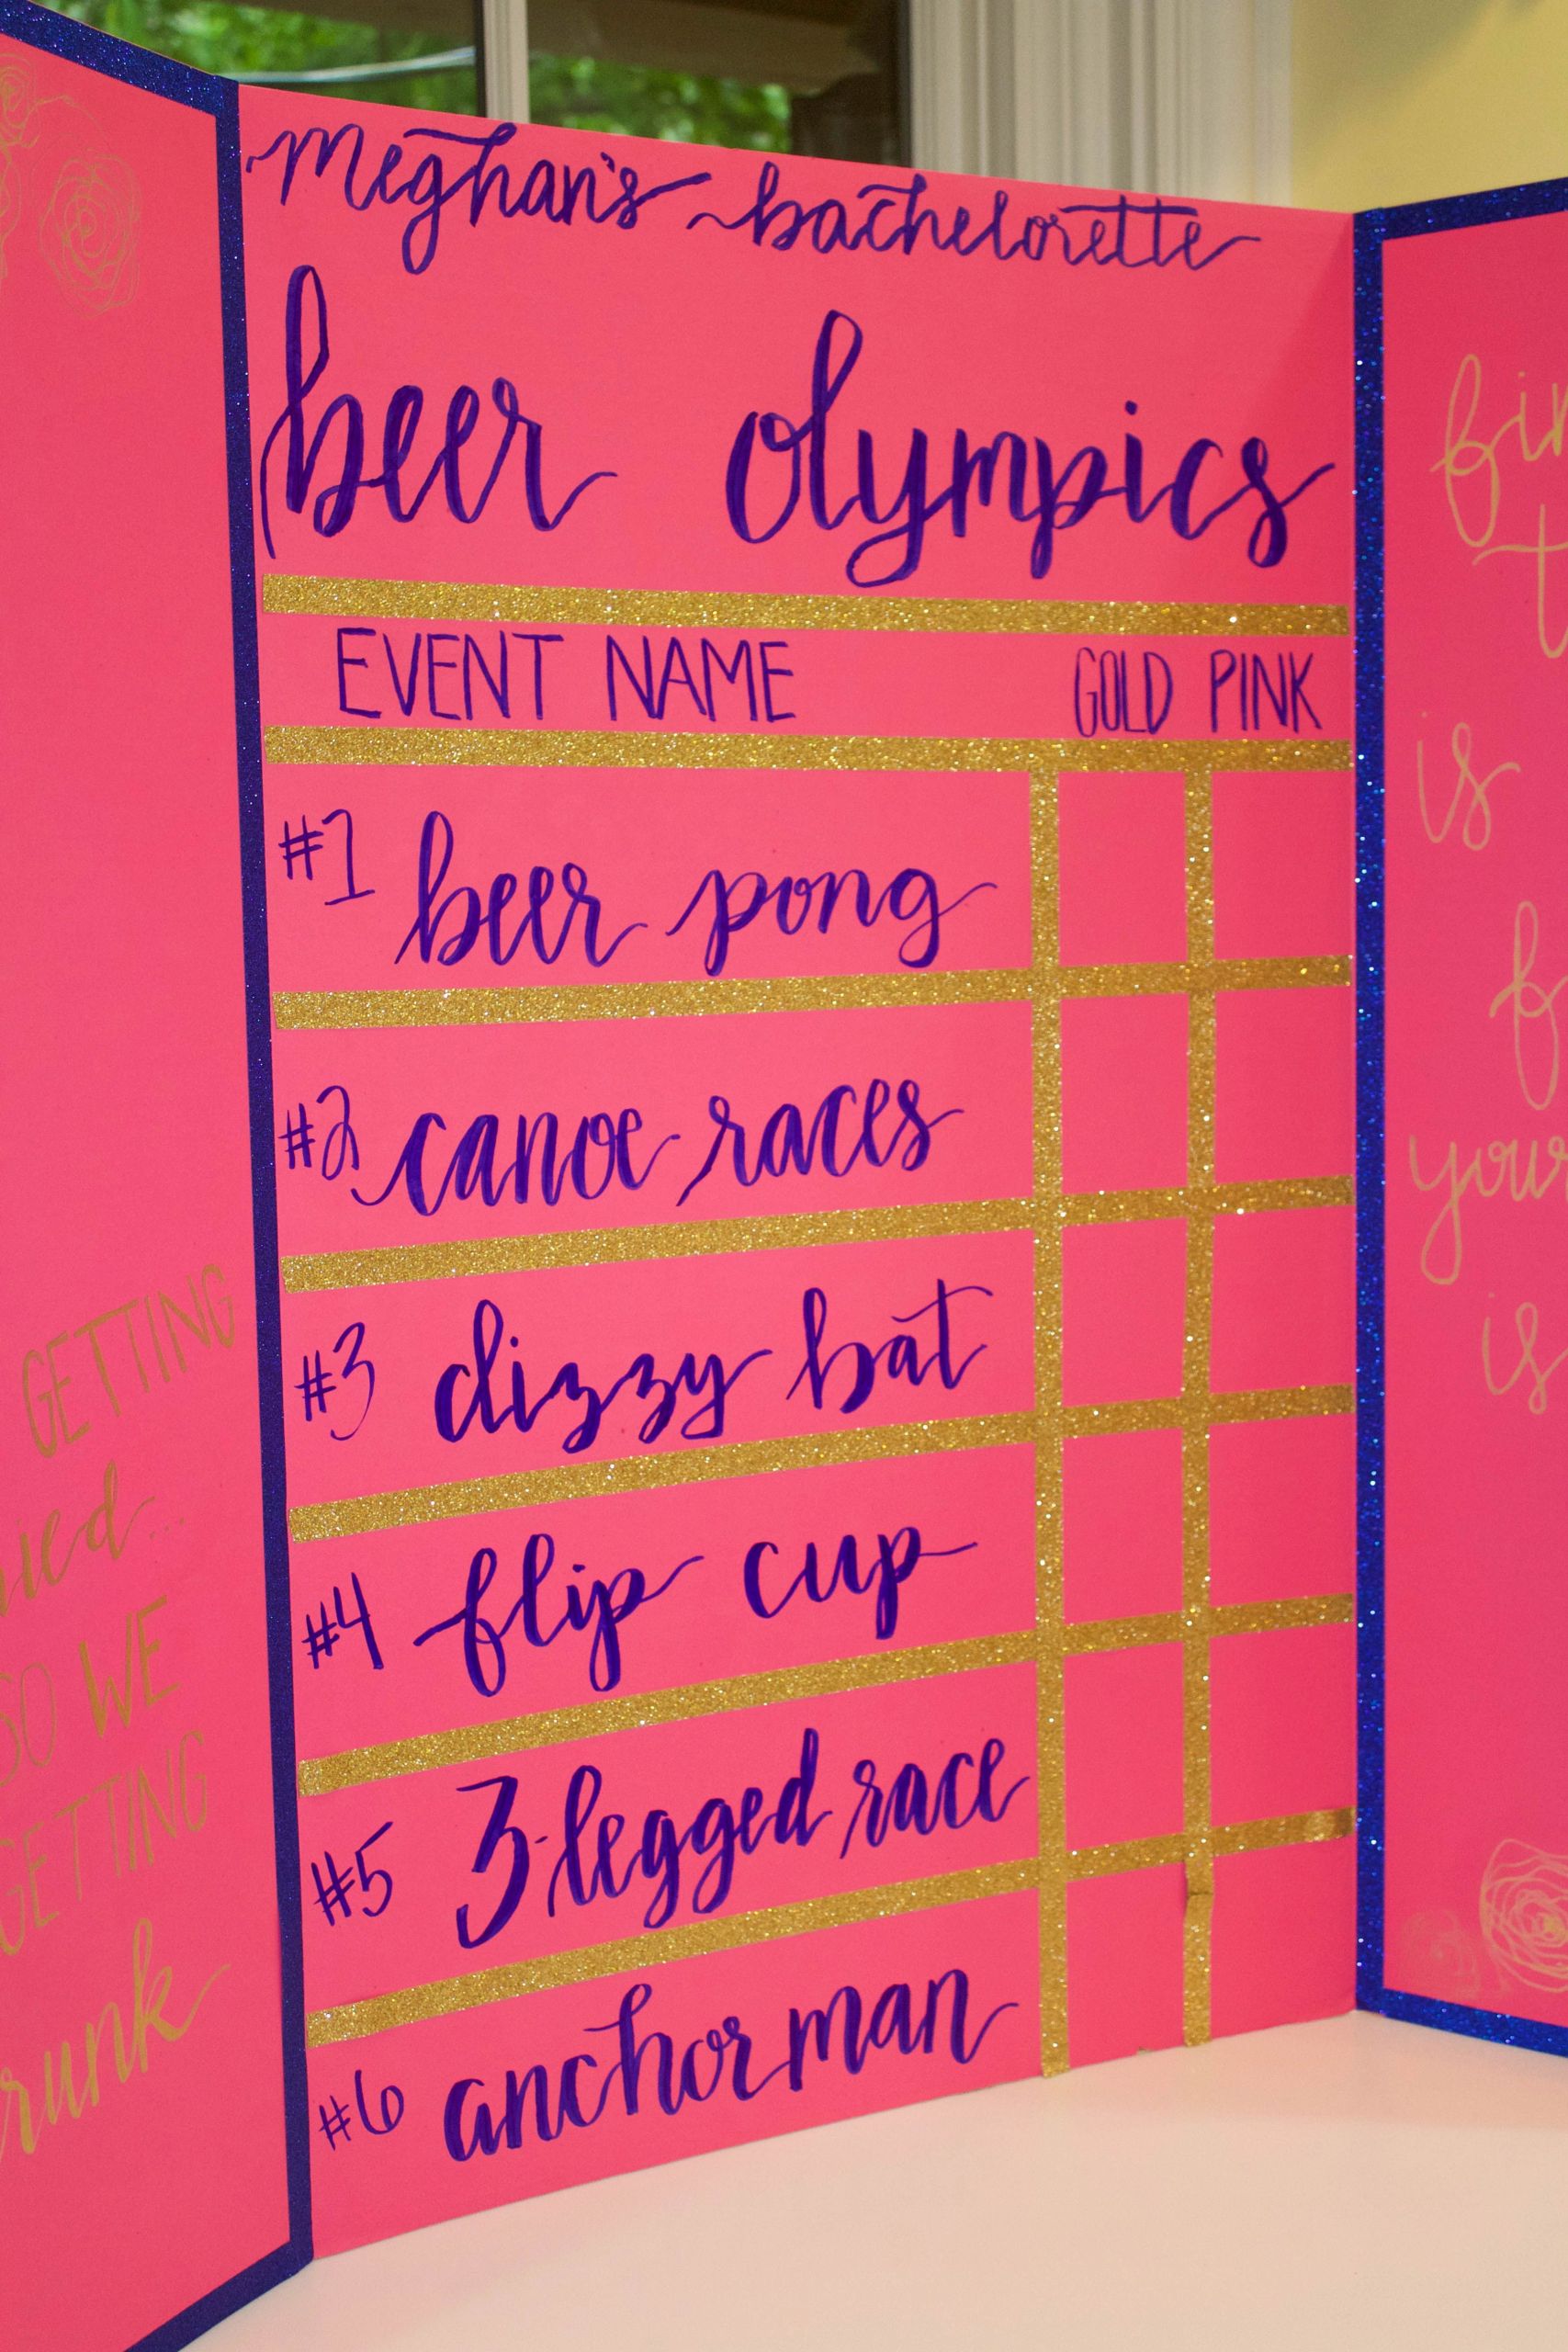 meghan's bachelorette
beer olympics
EVENT NAME GOLD PINK
#1 beer pong
#2 canoe races
#3 dizzy bat
#4 flip cup
#5 3-legged race
#6 anchorman
GETTING
SO WE
GETTING
is
is